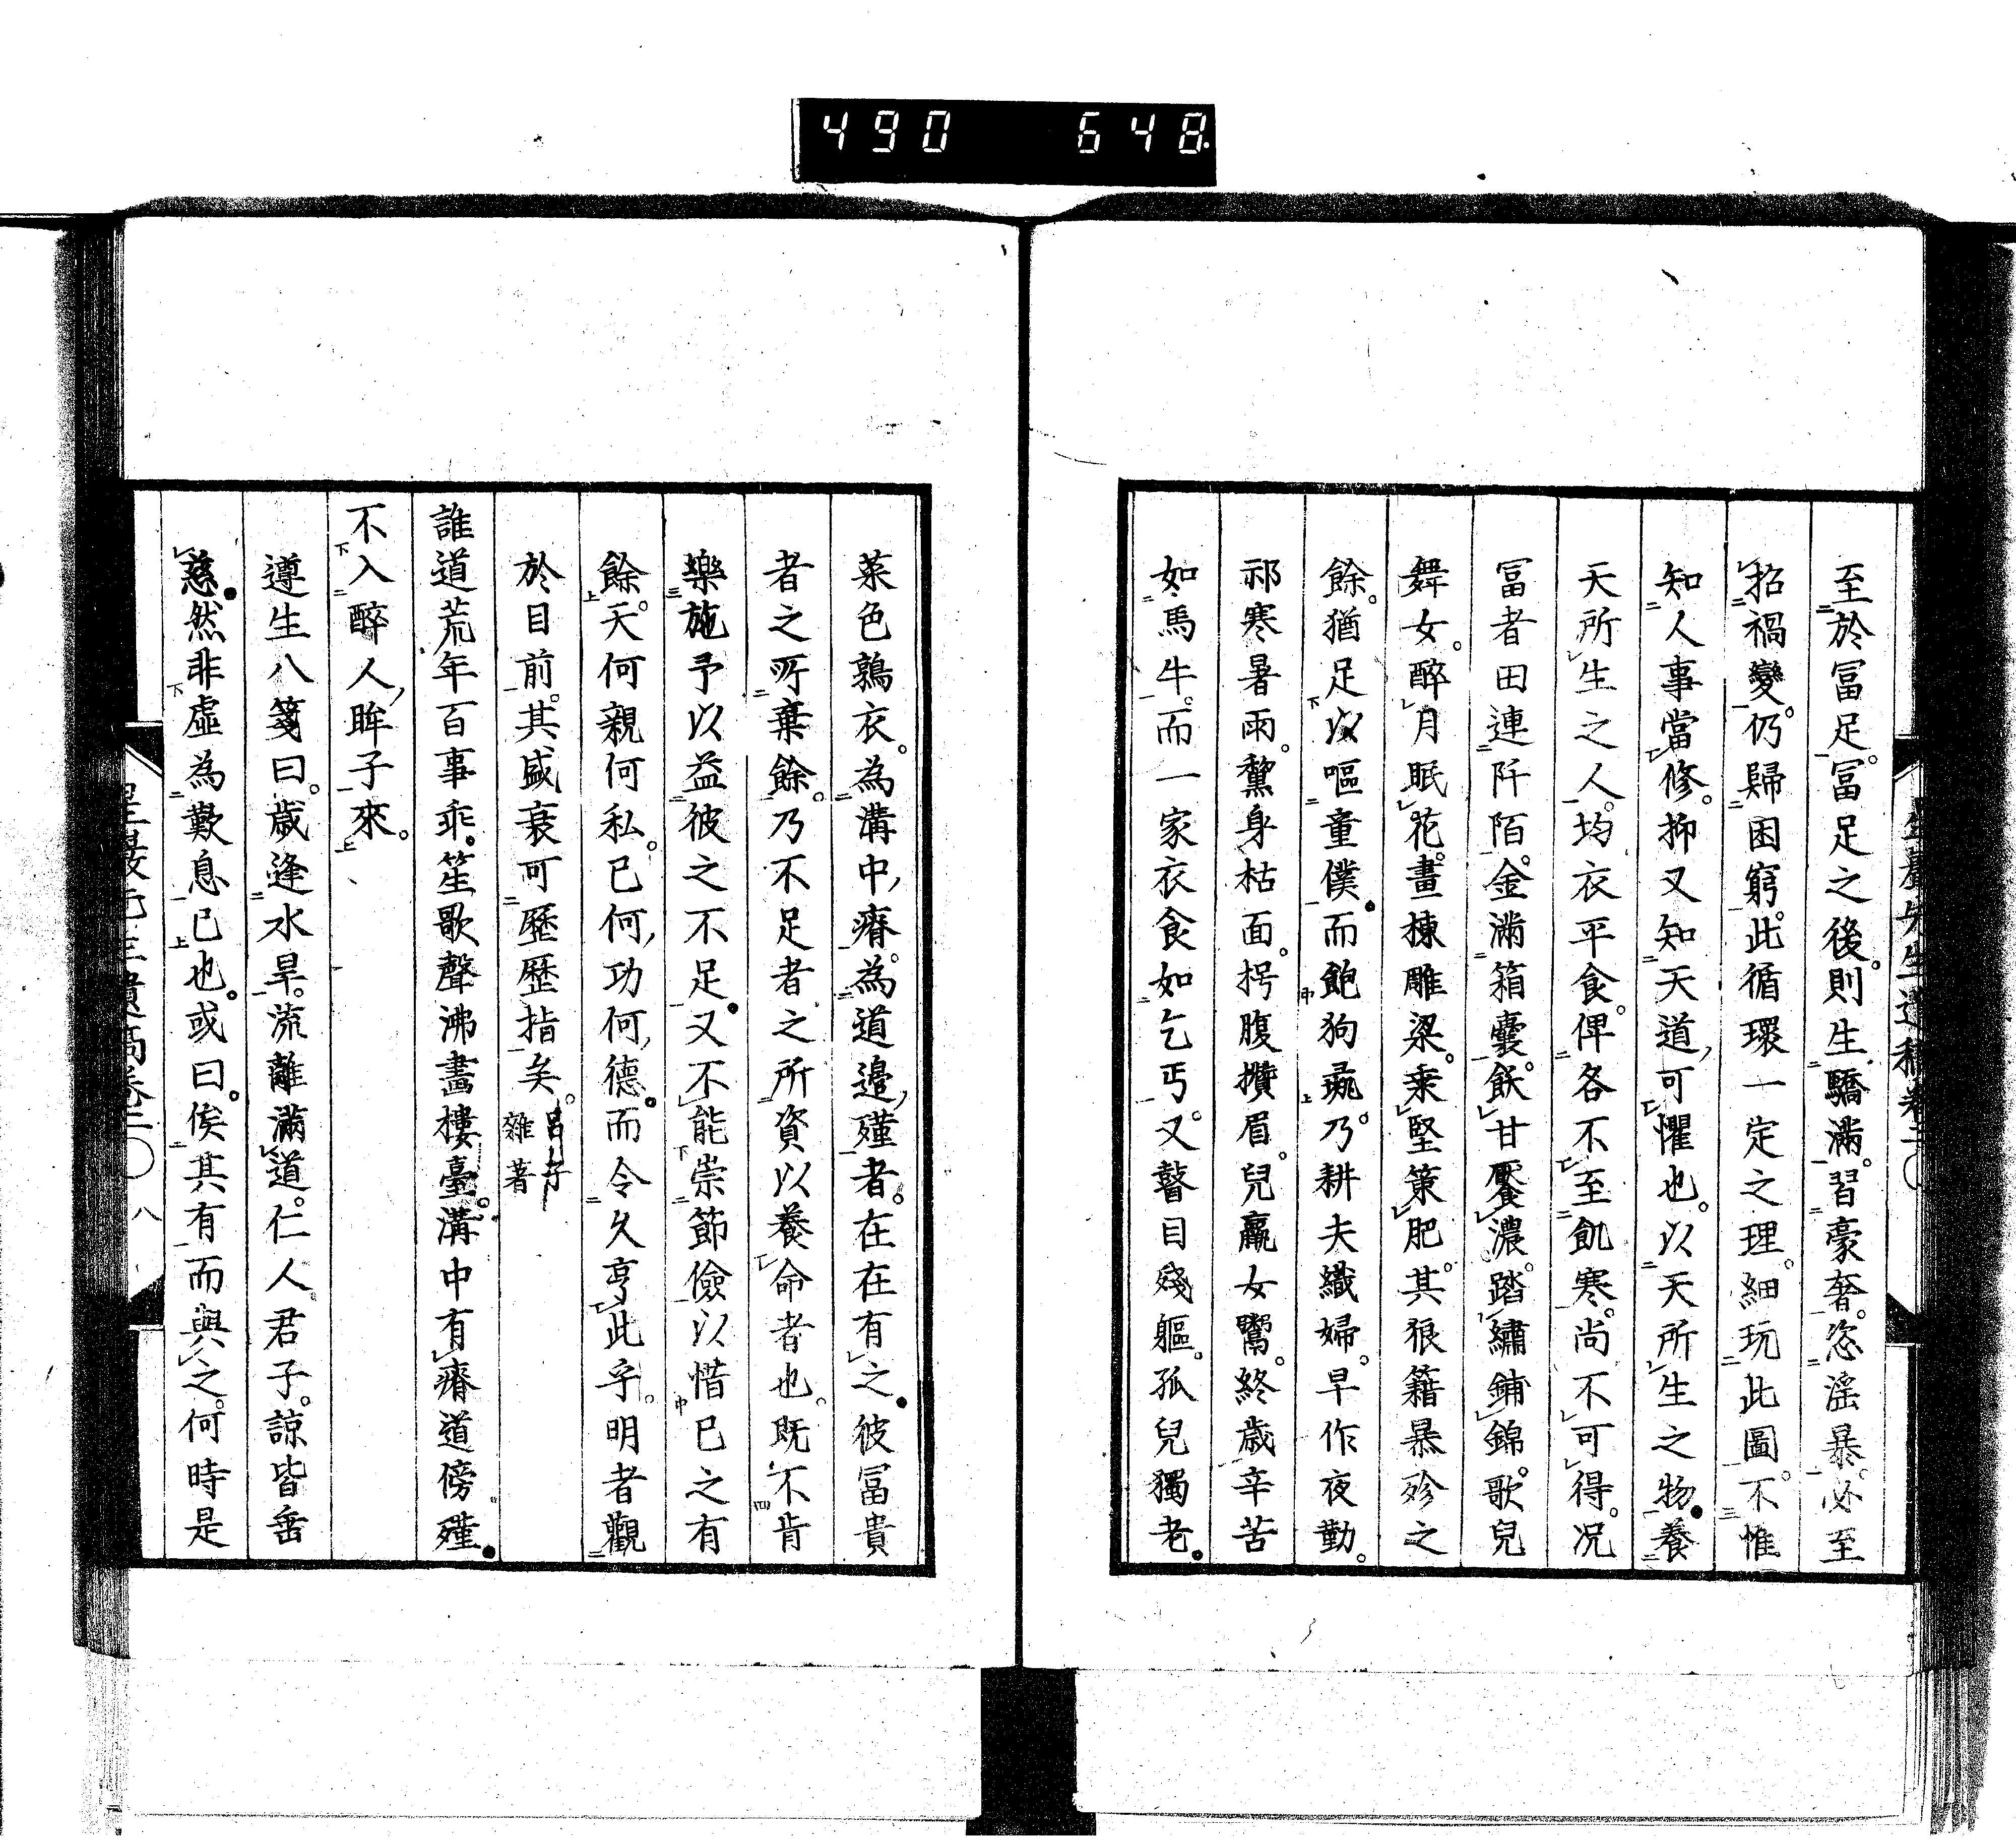 490 648
至於冨足。冨足之後。則生驕滿。習豪奢。恣淫暴。必至
招禍變。仍歸困窮。此循環一定之理。細玩此圖。不惟
知人事當修。抑又知天道可懼也。以天所生之物。養
天所生之人。均衣平食。俾各不至飢寒。尚不可得。况
冨者田連阡陌。金滿箱囊。飫甘饜濃。踏繡鋪錦。歌兒
舞女。醉月眠花。畫棟雕梁。乘堅策肥。其狼籍暴殄之
餘。猶足以嘔童僕。而飽狗彘。乃耕夫織婦。早作夜勤。
祁寒暑雨。黧身枯面。枵腹攢眉。兒羸女鬻。終歳辛苦
如馬牛。而一家衣食如乞丐。又瞽目殘軀。孤兒獨老。
菜色鶉衣。為溝中瘠。為道邊殣者。在在有之。彼冨貴
者之所棄餘。乃不足者之所資以養命者也。既不肯
樂施予以益彼之不足。又不能崇節儉以惜已之有
餘。天何親何私。已何功何德。而令久亨此乎。明者觀
於目前。其盛衰可歷歷指矣。呂子雜著
誰道荒年百事乖。笙歌聲沸畵樓臺。溝中有瘠道傍殣。
不入醉人眸子來。
遵生八箋曰。歳逢水旱。流離滿道。仁人君子。諒皆垂
慈。然非虛為歎息已也。或曰。俟其有而與之。何時是
先生遺稿卷二〇 八